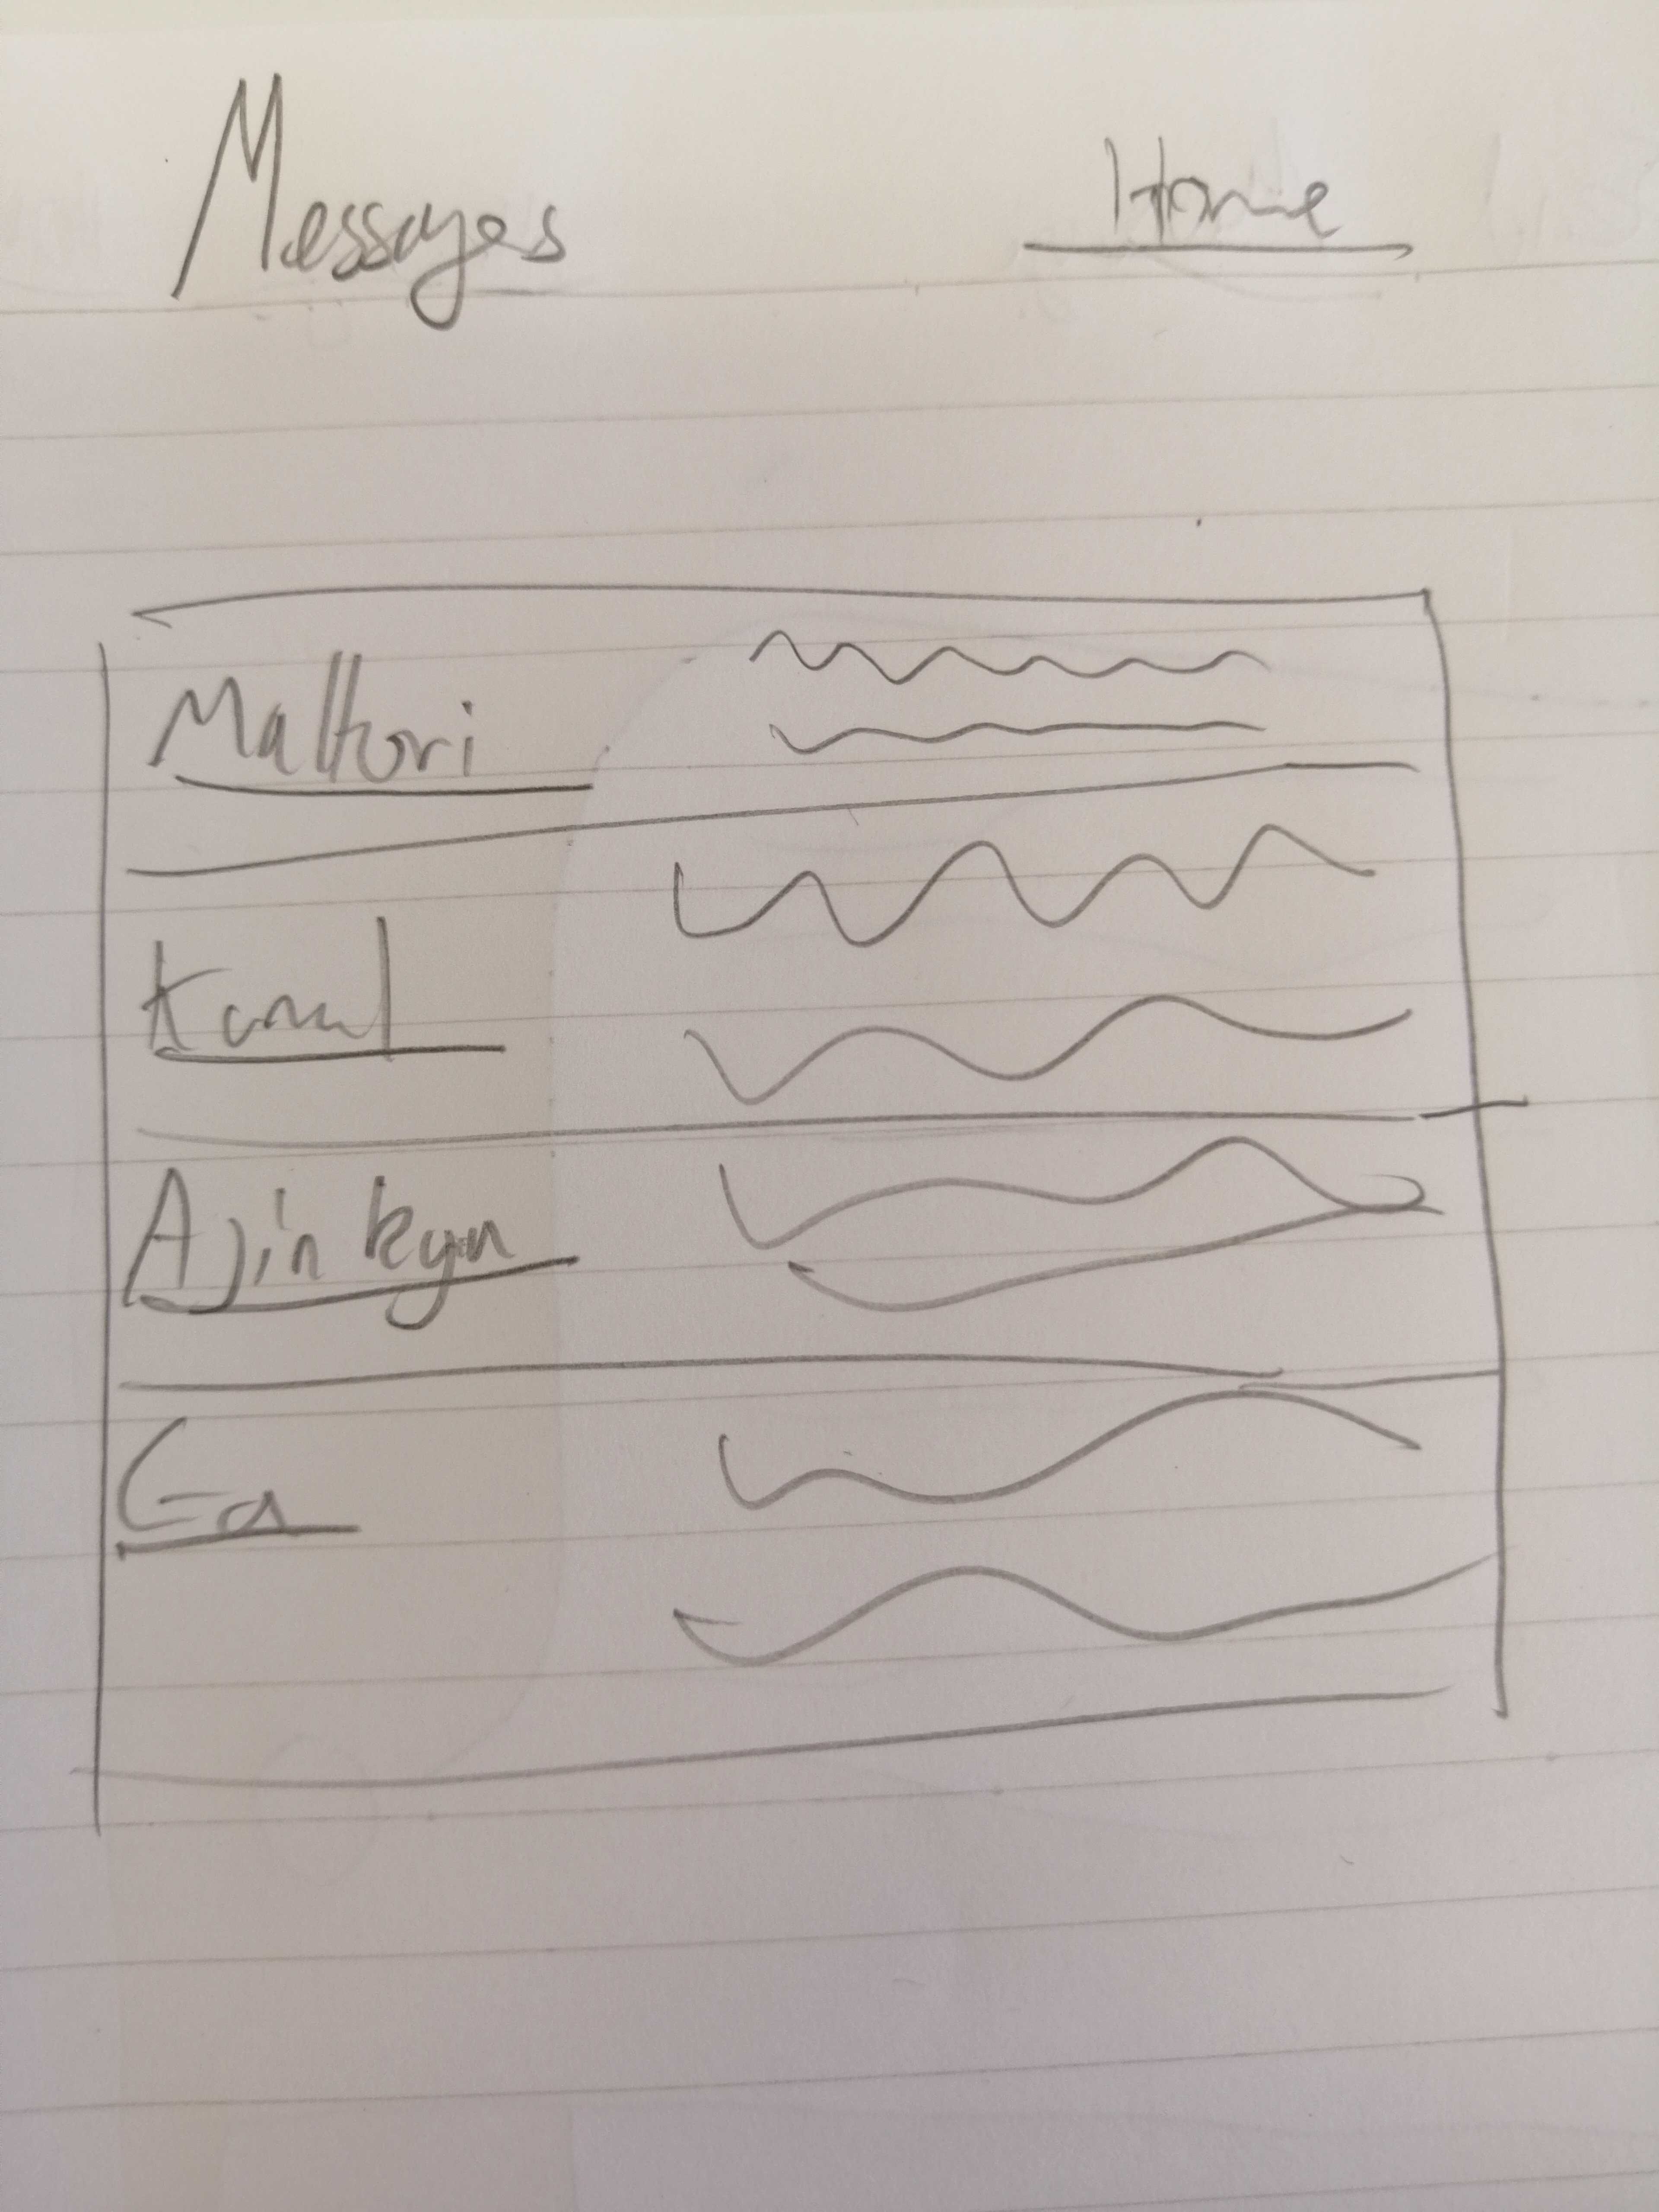 Messages
Home
Malhori
Kamal
Ajinkya